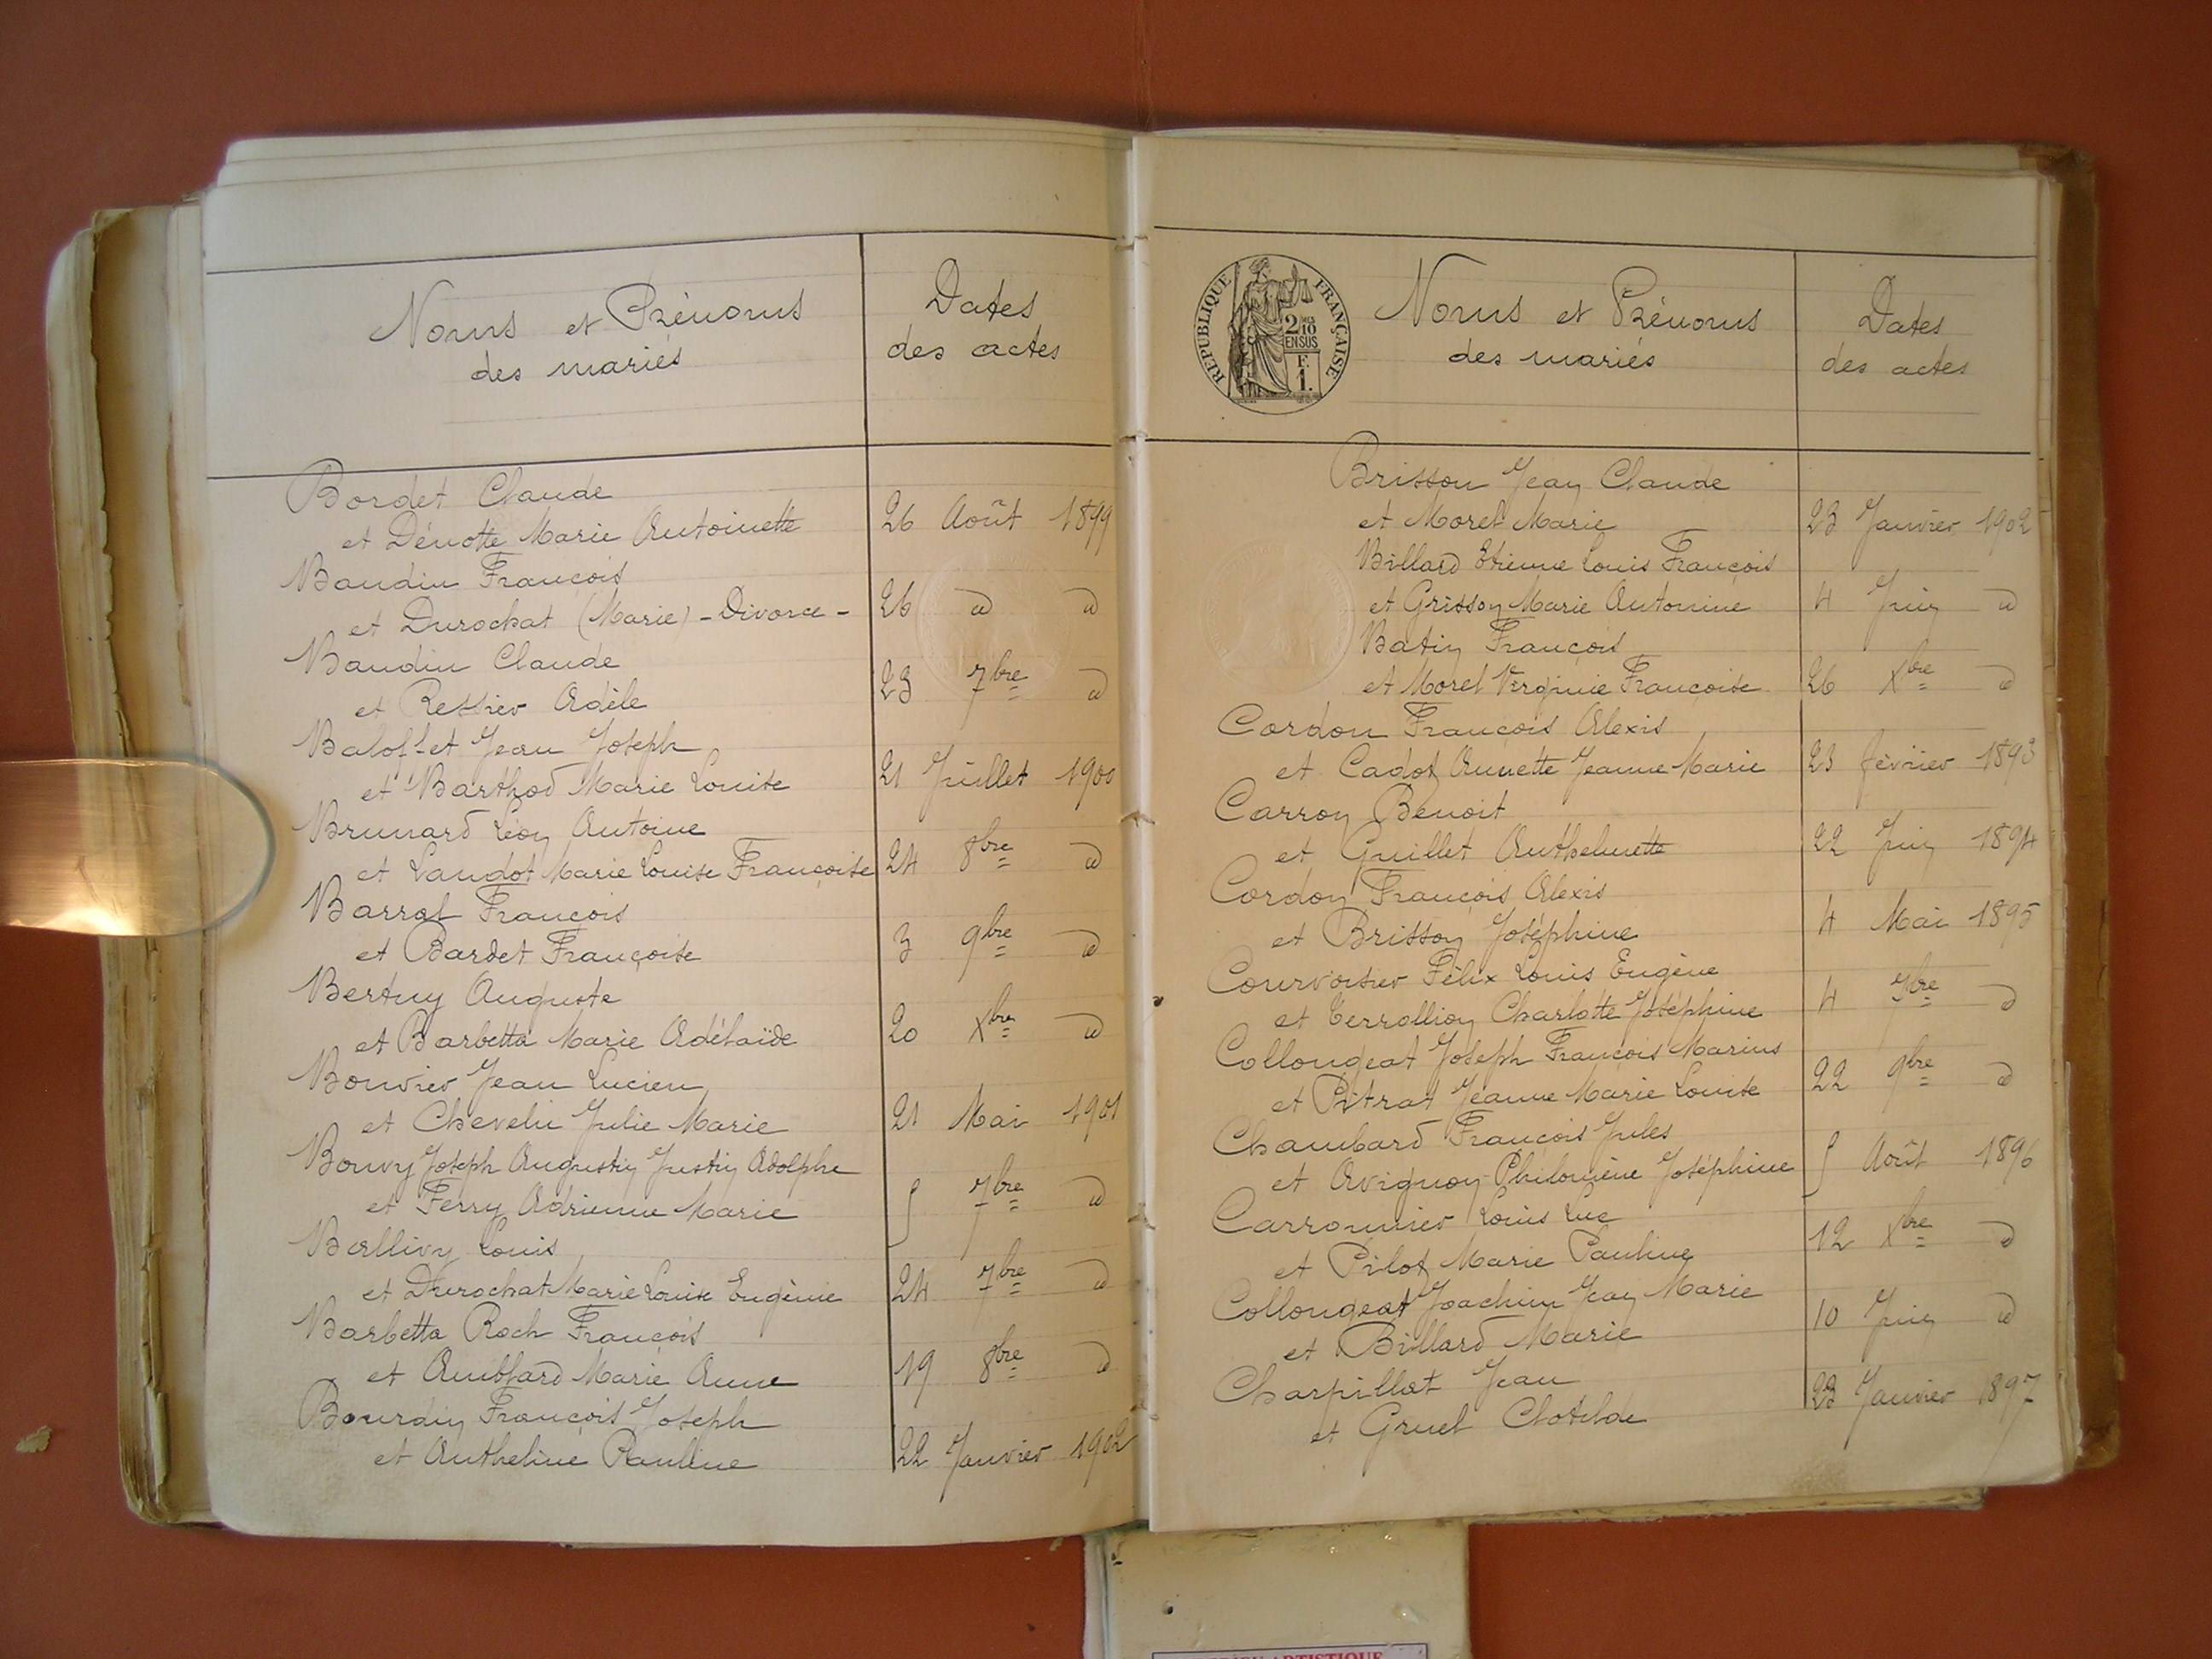 Noms et Prénoms
des mariés
Dates
des actes
Bordet Claude
et Dénotte Marie Antoinette 26 Août 1899
Baudin François
et Durochat (Marie) - Divorce - 26 d d
Baudin Claude
et Ressier Adèle 23 7bre d
Baloffet Jean Joseph
et Barthod Marie Louise 21 Juillet 1900
Brunard Léon Antoine
et Landot Marie Louise Françoise 24 8bre d
Barral François
et Bardet Françoise 3 9bre d
Bertuy Auguste
et Barbetta Marie Adélaïde 20 Xbre d
Bouvier Jean Lucien
et Chevelu Julie Marie 21 Mai 1901
Bouvy Joseph Augustin Justin Adolphe
et Ferry Adrienne Marie 5 7bre d
Ballivy Louis
et Durochat Marie Louise Eugénie 24 7bre d
Barbetta Roch François
et Amblard Marie Anne 19 8bre d
Bourdin François Joseph
et Antheline Pauline 22 Janvier 1902
REPUBLIQUE FRANÇAISE
2 DMES
10
EN SUS
F.
1.
Noms et Prénoms
des mariés
Dates
des actes
Brisson Jean Claude
et Morel Marie 23 Janvier 1902
Billard Etienne Louis François
et Grisson Marie Antonine 4 Juin d
Batin François
et Morel Virginie Françoise 26 Xbre d
Cordon François Alexis
et Cadot Annette Jeanne Marie 23 février 1893
Carron Benoit
et Guillet Anthelmette 22 Juin 1894
Cordon François Alexis
et Brisson Joséphine 4 Mai 1895
Courvoisier Félix Louis Eugène
et Terrollion Charlotte Joséphine 4 7bre d
Collongeat Joseph François Marius
et Pitrat Jeanne Marie Louise 22 9bre d
Chambard François Jules
et Avignon Philomène Joséphine 5 Août 1896
Carronnier Louis Luc
et Pilot Marie Pauline 12 Xbre d
Collongeat Joachim Jean Marie
et Billard Marie 10 Juin d
Charpillat Jean
et Gruel Clotilde 23 Janvier 1897
ARTISTIQUE